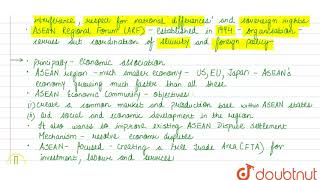 interference, respect for national differences and sovereign rights
ASEAN Regional Forum (ARF) - established in 1994 - organisation -
carries out coordination of security and foreign policy
principally - economic association
ASEAN region - much smaller economy - US, EU, Japan - ASEAN's
economy growing much faster than all these
ASEAN Economic Community - objectives
i) create a common market and production base within ASEAN states
ii) aid social and economic development in the region.
It also wants to improve existing ASEAN Dispute Settlement
Mechanism - resolve economic disputes
ASEAN - focused - creating a Free Trade Area (FTA) for
investment, labour and services
doubtnut